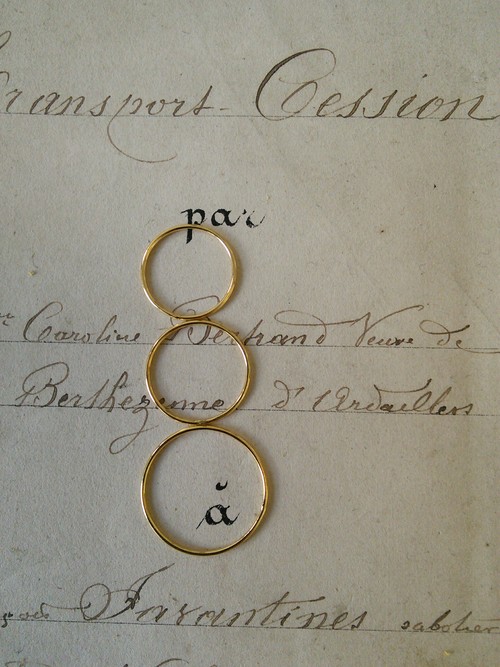 Transport-Cession
par
Caroline Bertrand Veuve de
Berthezenne d'Ardaillers
à
Tarantines sabotier